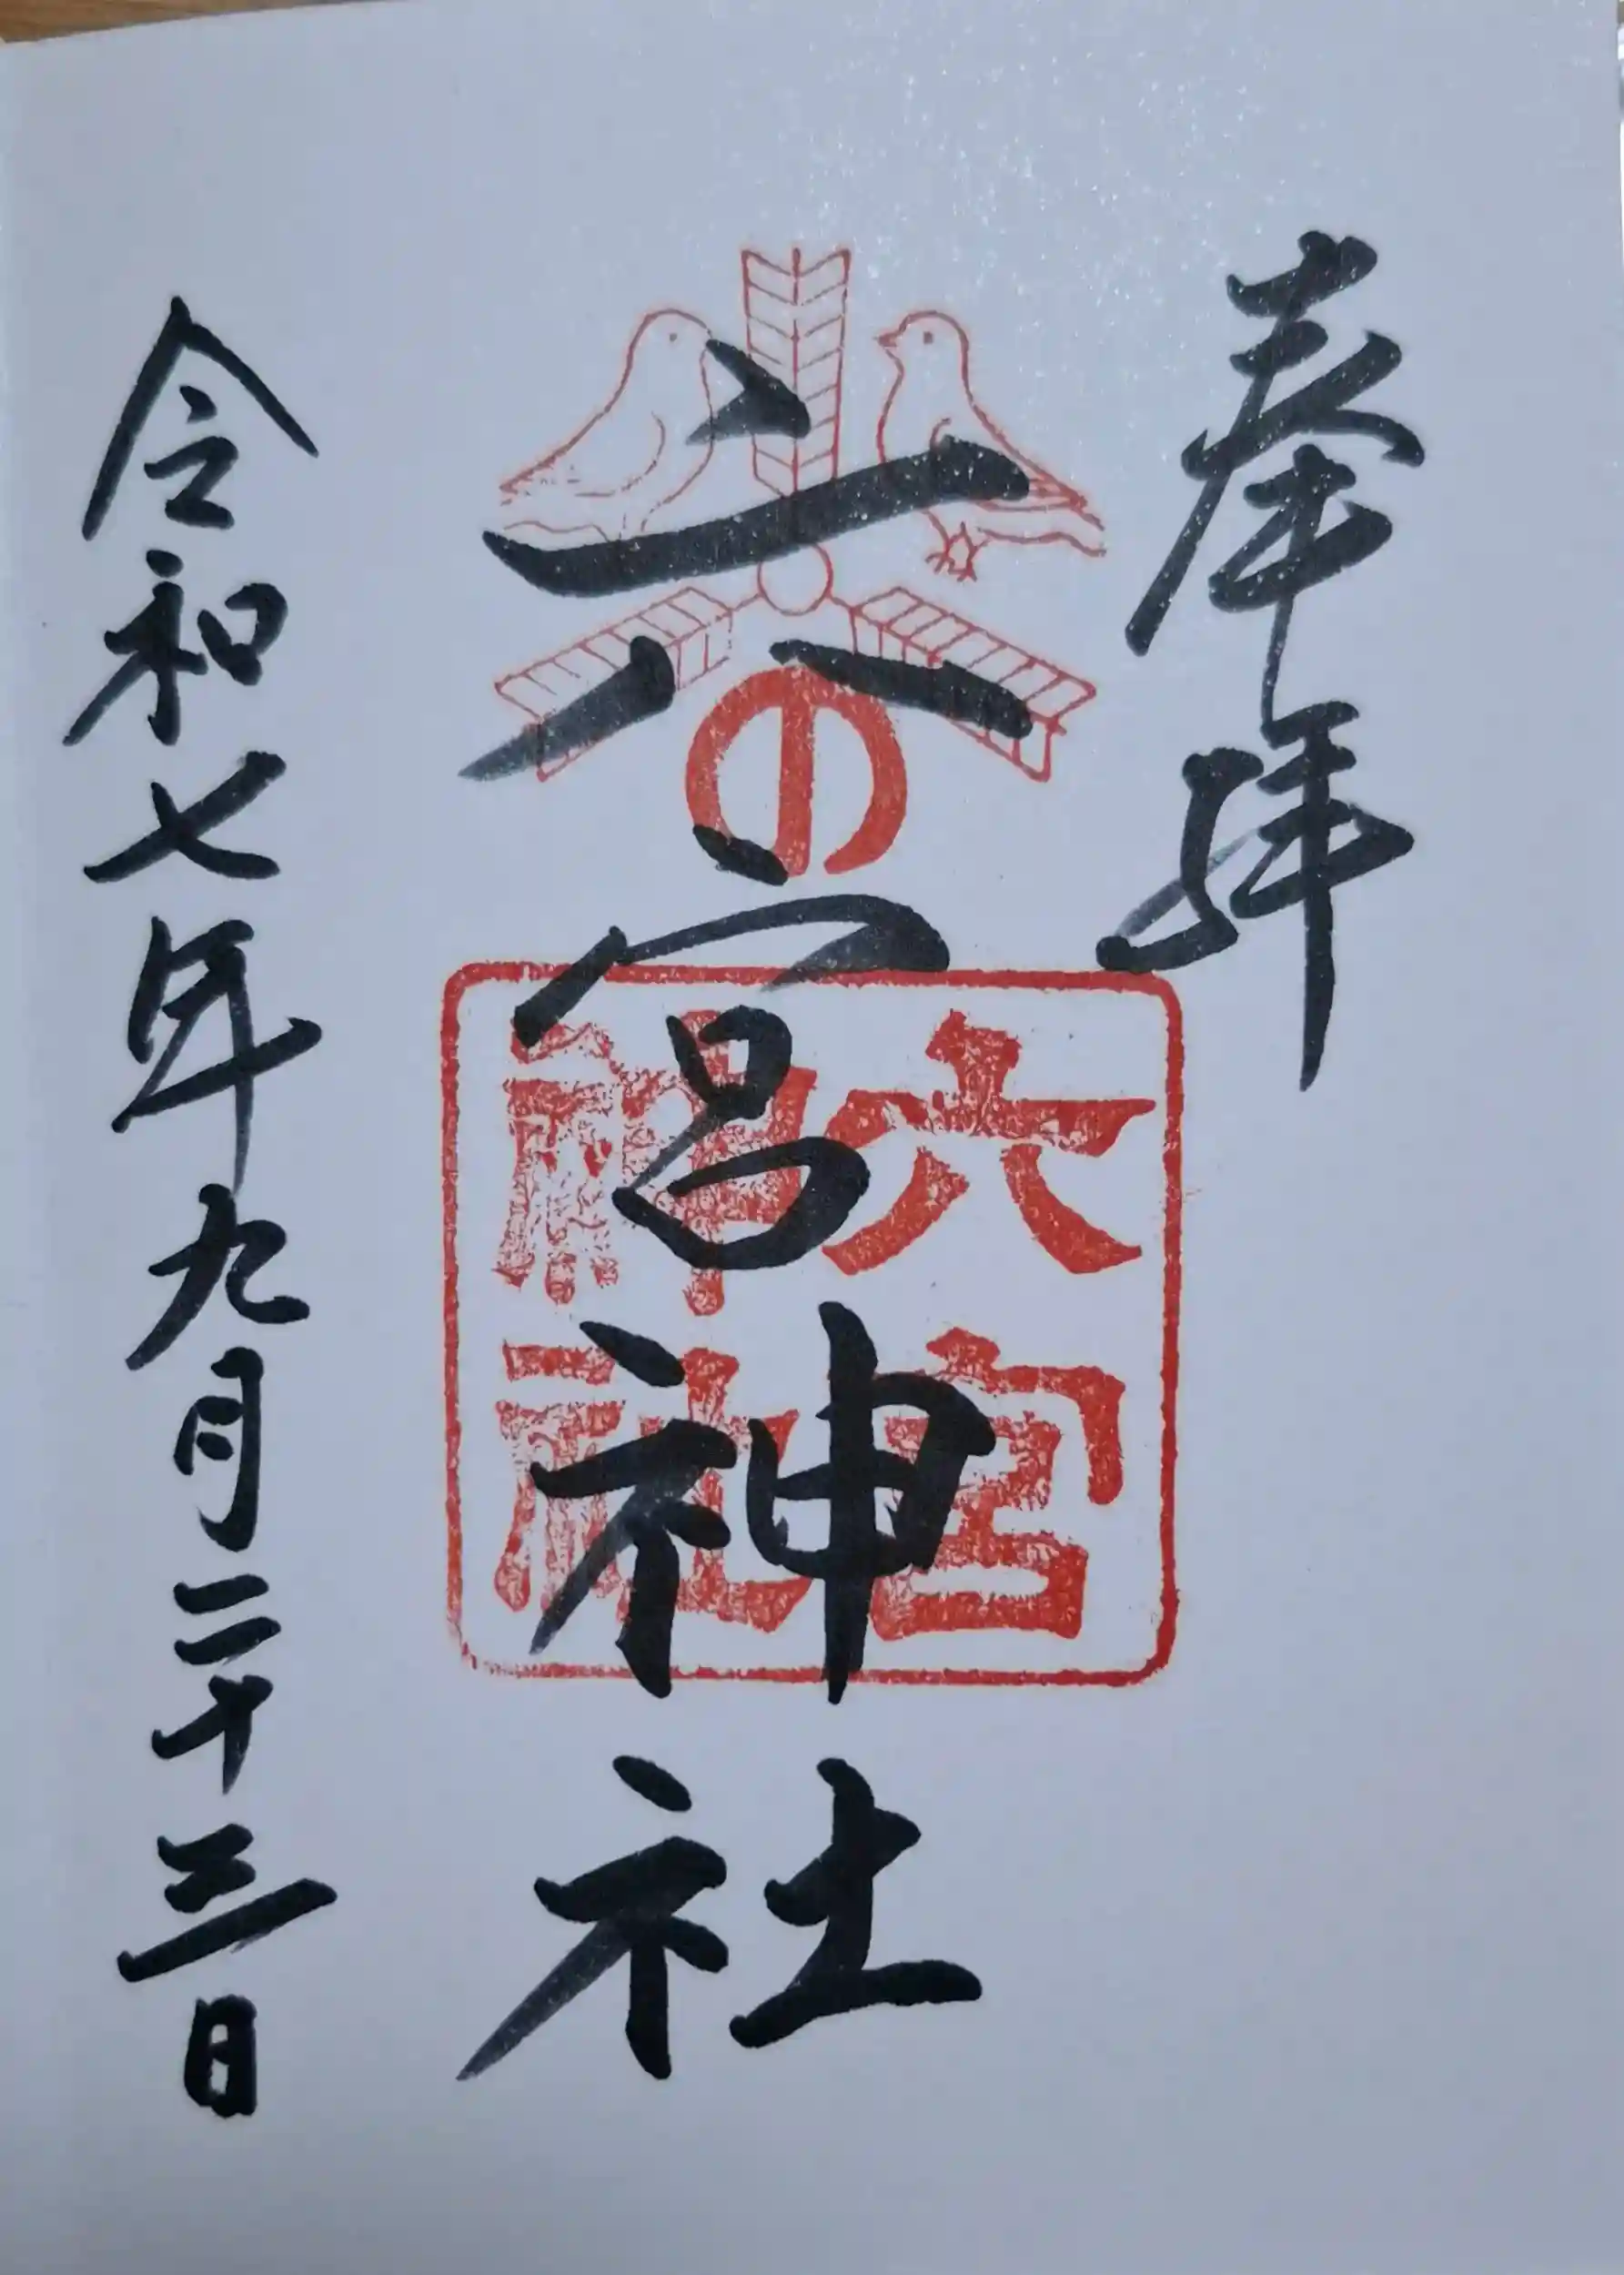 奉拝
六宮神社
の
六宮
神社
令和七年九月二十三日